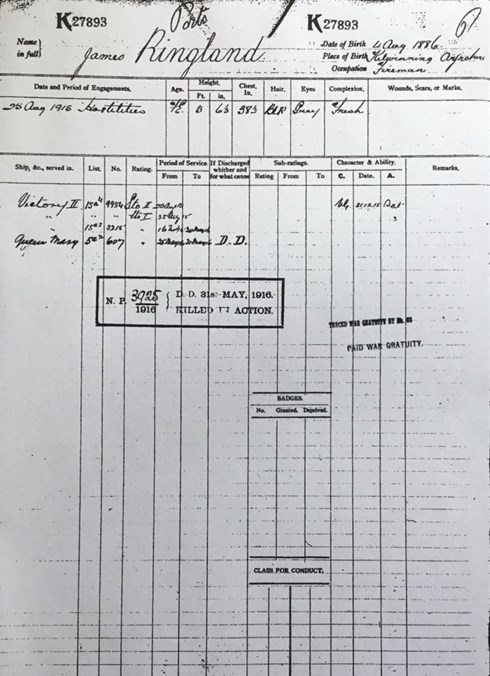 K 27893
Ports
K 27893
Name in full} James Ringland
Date of Birth 4 Aug 1886
Place of Birth Kilwinning Ayrshire
Occupation Fireman
Date and Period of Engagements. Age. Height. Ft. in. Chest. In. Hair. Eyes Complexion. Wounds, Scars, or Marks.
25 Aug 1915 Hostilities 5 6½ 38½ Grey Fresh
Ship, &c., served in. List. No. Rating. Period of Service From To If Discharged whither and for what cause Sub-ratings. Rating From To Character & Ability. C. Date. A. Remarks.
Victory II 15a4 Sto II VG 31.12.15 Sat
" " Sto I 25 Aug 15
15a2
Queen Mary 5a2 607 " D. D.
N. P. 3925/1916 { D. D. 31st MAY, 1916.
KILLED IN ACTION.
TRACED WAR GRATUITY BY
PAID WAR GRATUITY.
BADGES.
No. Granted. Deprived.
CLASS FOR CONDUCT.